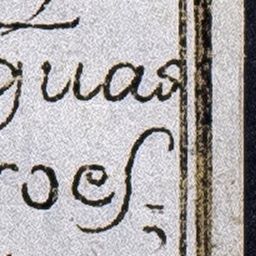 guas
roes;